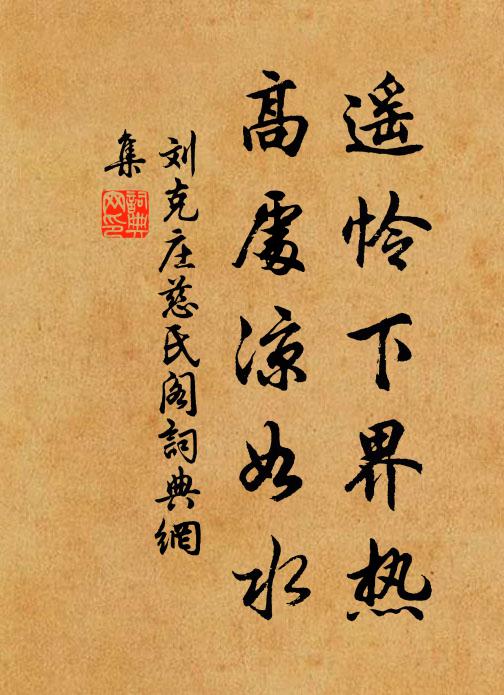 遥怜下界热
高處凉如水
刘克庄慈氏阁詞典網
集
詞典
网印